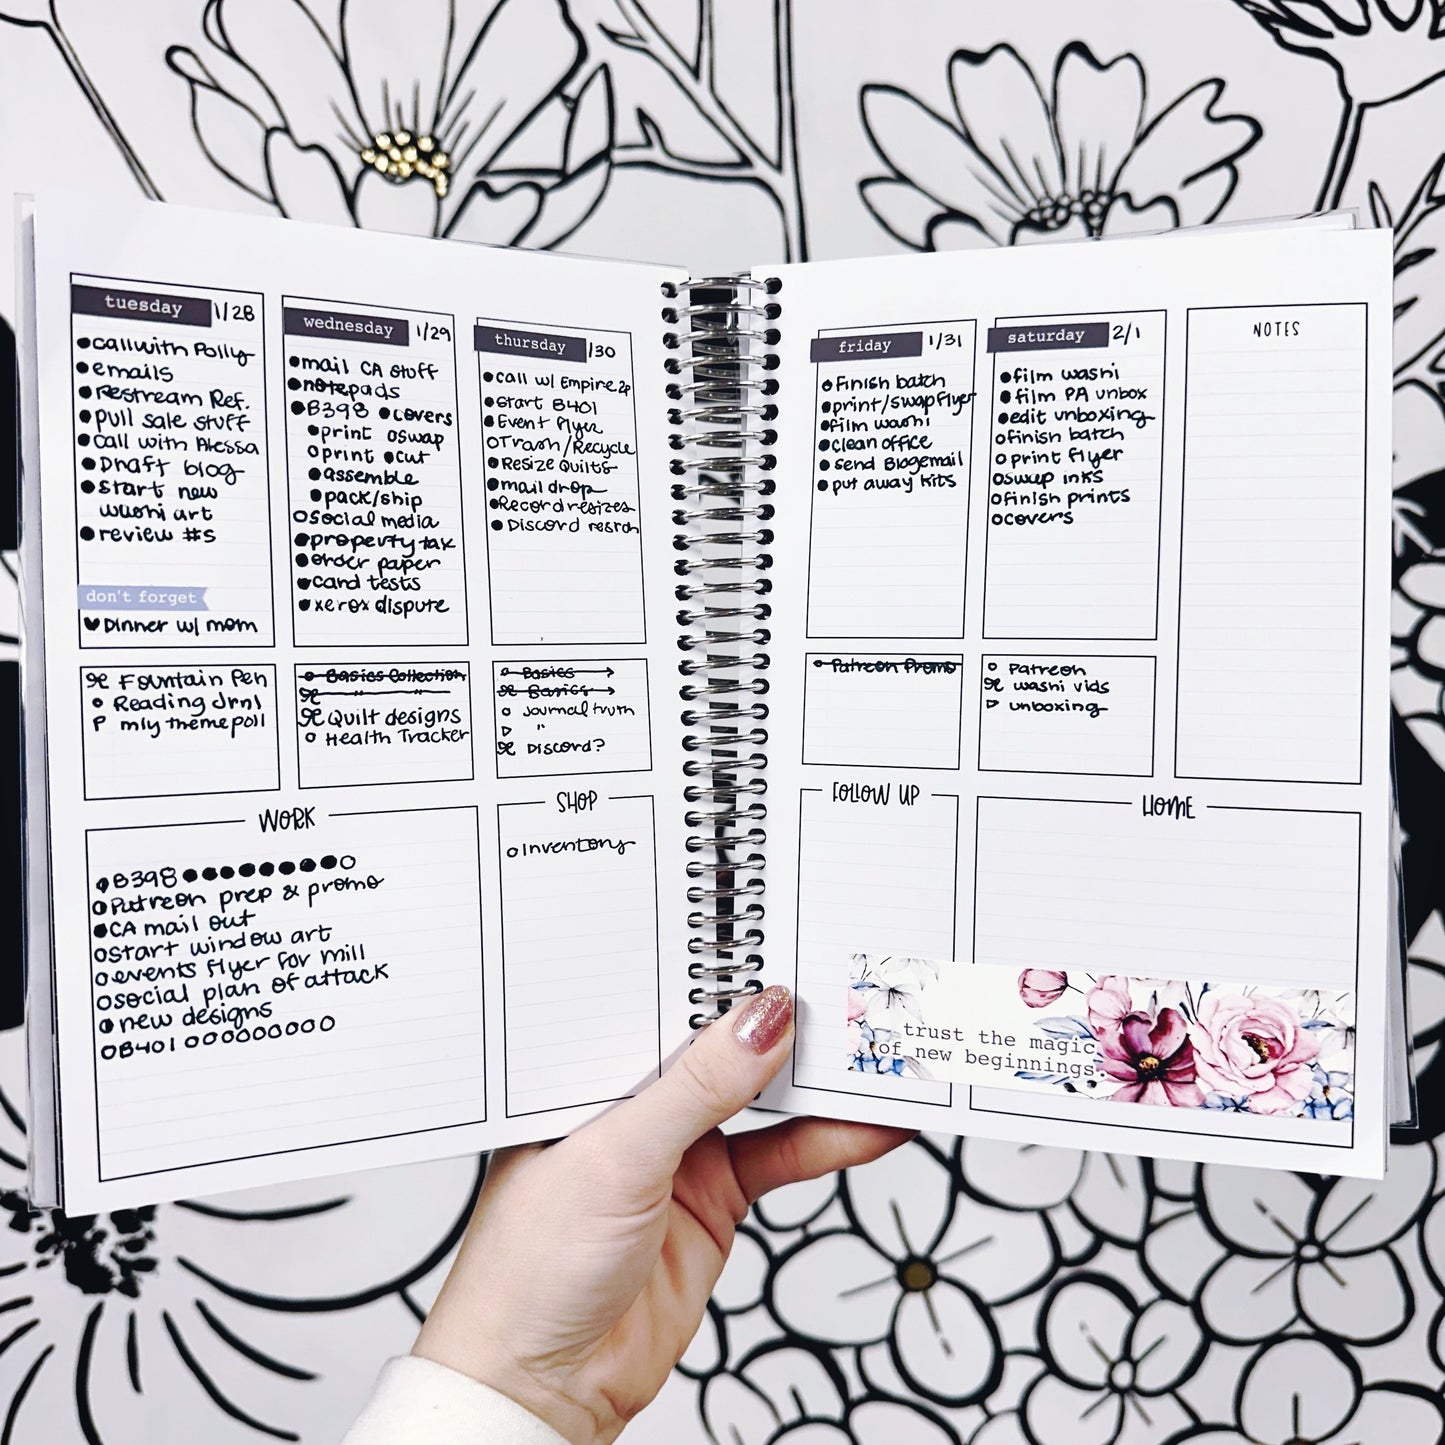 tuesday 1/28
call with Polly
emails
Restream Ref.
pull sale stuff
call with Alessa
Draft blog
start new
washi art
review #s
don't forget
Dinner w/ mom
Fountain Pen
Reading Jrnl
P mly theme poll
wednesday 1/29
mail CA stuff
notepads
B398 covers
print swap
print cut
assemble
pack/ship
social media
property tax
order paper
card tests
xerox dispute
Basics Collection
" "
Quilt designs
Health Tracker
thursday /30
call w/ Empire 2p
start B401
Event Flyer
Trash/Recycle
Resize Quilts
mail drop
Record resizes
Discord resrch
Basics
Basics
Journal truth
"
Discord?
WORK
B398
Patreon prep & promo
CA mail out
start window art
events flyer for mill
social plan of attack
new designs
B401
SHOP
Inventory
friday 1/31
Finish batch
print/swap Flyer
film washi
clean office
send Blogemail
put away kits
Patreon Promo
saturday 2/1
film washi
film PA unbox
edit unboxing
finish batch
print flyer
swap inks
finish prints
covers
Patreon
washi vids
unboxing
NOTES
FOLLOW UP
HOME
trust the magic
of new beginnings.